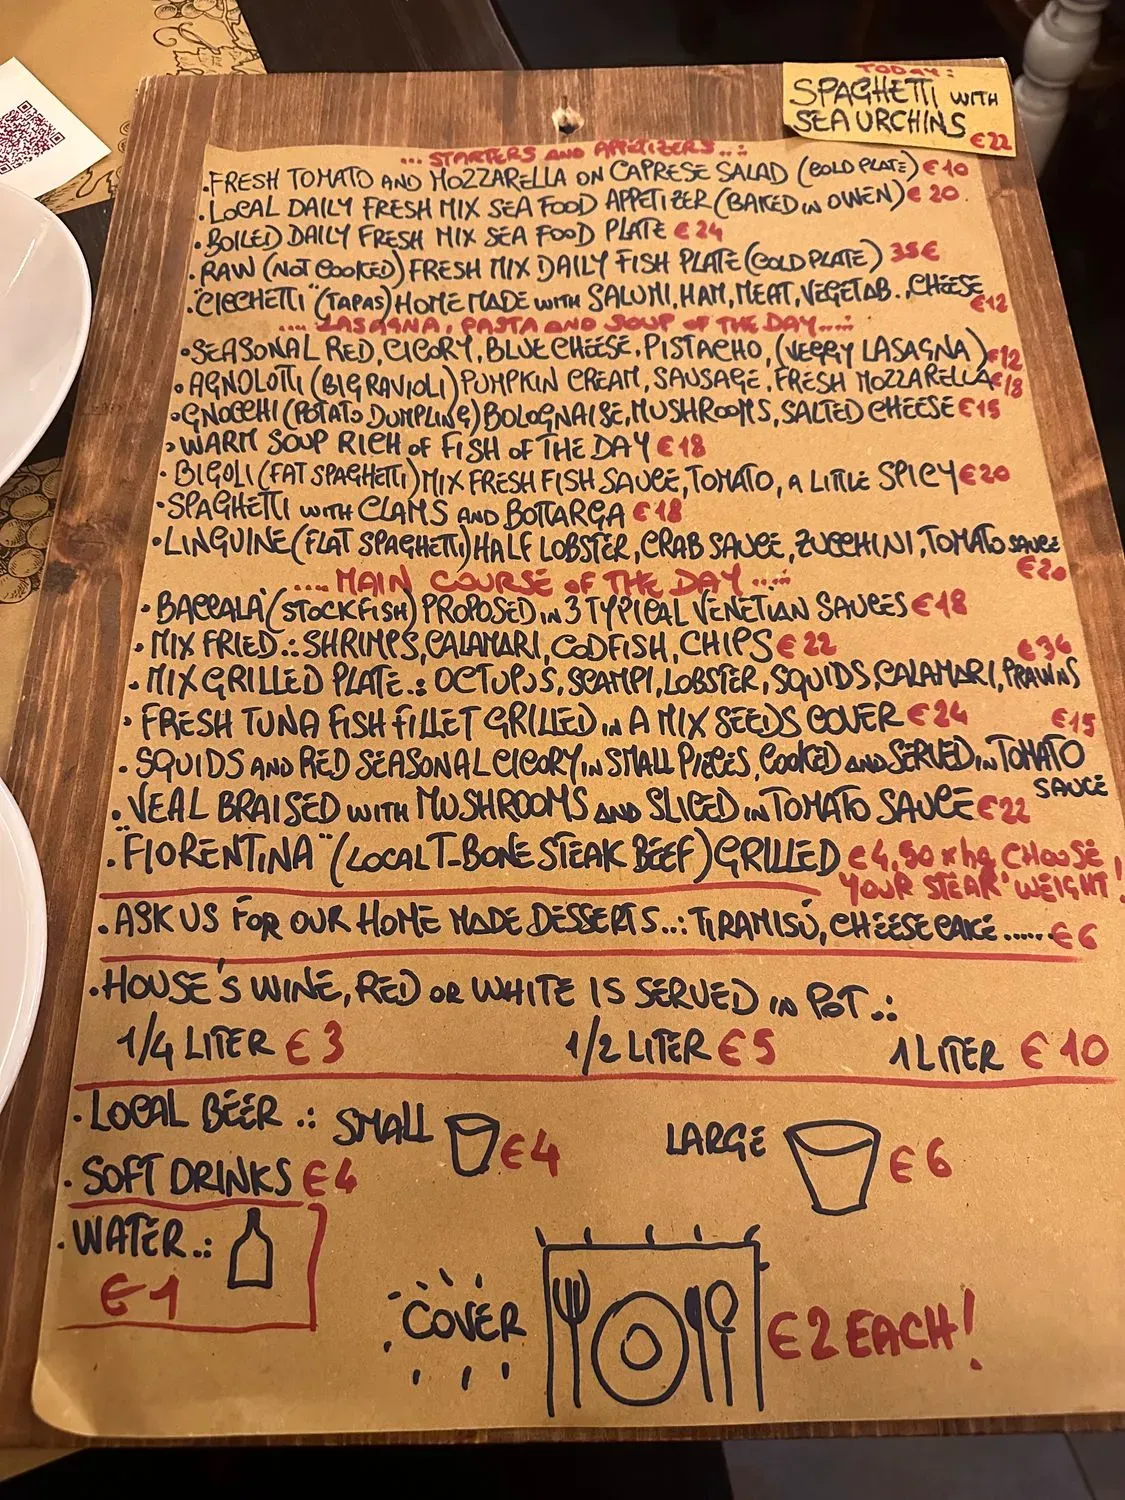 TODAY:
SPAGHETTI WITH
SEA URCHINS
€22
... STARTERS AND APPETIZERS...:
.FRESH TOMATO AND MOZZARELLA ON CAPRESE SALAD (COLD PLATE) €10
.LOCAL DAILY FRESH MIX SEA FOOD APPETIZER (BAKED IN OWEN) € 20.
.BOILED DAILY FRESH MIX SEA FOOD PLATE € 24
.RAW (NOT COOKED) FRESH MIX DAILY FISH PLATE (COLD PLATE) 35€
."CICCHETTI" (TAPAS) HOME MADE WITH SALUMI, HAM, MEAT, VEGETAB.., CHEESE €12
.... LASAGNA, PASTA AND SOUP OF THE DAY...:
.SEASONAL RED, CICORY, BLUE CHEESE, PISTACHO, (VEGGY LASAGNA) €12
.AGNOLOTTI (BIG RAVIOLI) PUMPKIN CREAM, SAUSAGE, FRESH MOZZARELLA €18
.GNOCCHI (POTATO DUMPLING) BOLOGNAISE, MUSHROOMS, SALTED CHEESE €15
.WARM SOUP RICH OF FISH OF THE DAY €18
.BIGOLI (FAT SPAGHETTI) MIX FRESH FISH SAUCE, TOMATO, A LITTLE SPICY €20
.SPAGHETTI WITH CLAMS AND BOTTARGA €18
.LINGUINE (FLAT SPAGHETTI) HALF LOBSTER, CRAB SAUCE, ZUCCHINI, TOMATO SAUCE
€20
.... MAIN COURSE OF THE DAY...:
.BACCALA' (STOCKFISH) PROPOSED IN 3 TYPICAL VENETIAN SAUCES €18
.MIX FRIED.: SHRIMPS, CALAMARI, CODFISH, CHIPS € 22
.MIX GRILLED PLATE.: OCTUPUS, SCAMPI, LOBSTER, SQUIDS, CALAMARI, PRAWNS €36
.FRESH TUNA FISH FILLET GRILLED IN A MIX SEEDS COVER € 24
.SQUIDS AND RED SEASONAL CICORY, IN SMALL PIECES, COOKED AND SERVED IN TOMATO €15
SAUCE
.VEAL BRAISED WITH MUSHROOMS AND SLICED IN TOMATO SAUCE €22
."FIORENTINA" (LOCAL T-BONE STEAK BEEF) GRILLED €4,50 x hg CHOOSE
YOUR STEAK' WEIGHT!
.ASK US FOR OUR HOME MADE DESSERTS..: TIRAMISÙ, CHEESE CAKE ..... €6
.HOUSE'S WINE, RED OR WHITE IS SERVED IN POT.:
1/4 LITER € 3 1/2 LITER € 5 1 LITER € 10
.LOCAL BEER .: SMALL €4 LARGE €6
.SOFT DRINKS €4
.WATER.:
€1
COVER €2 EACH!